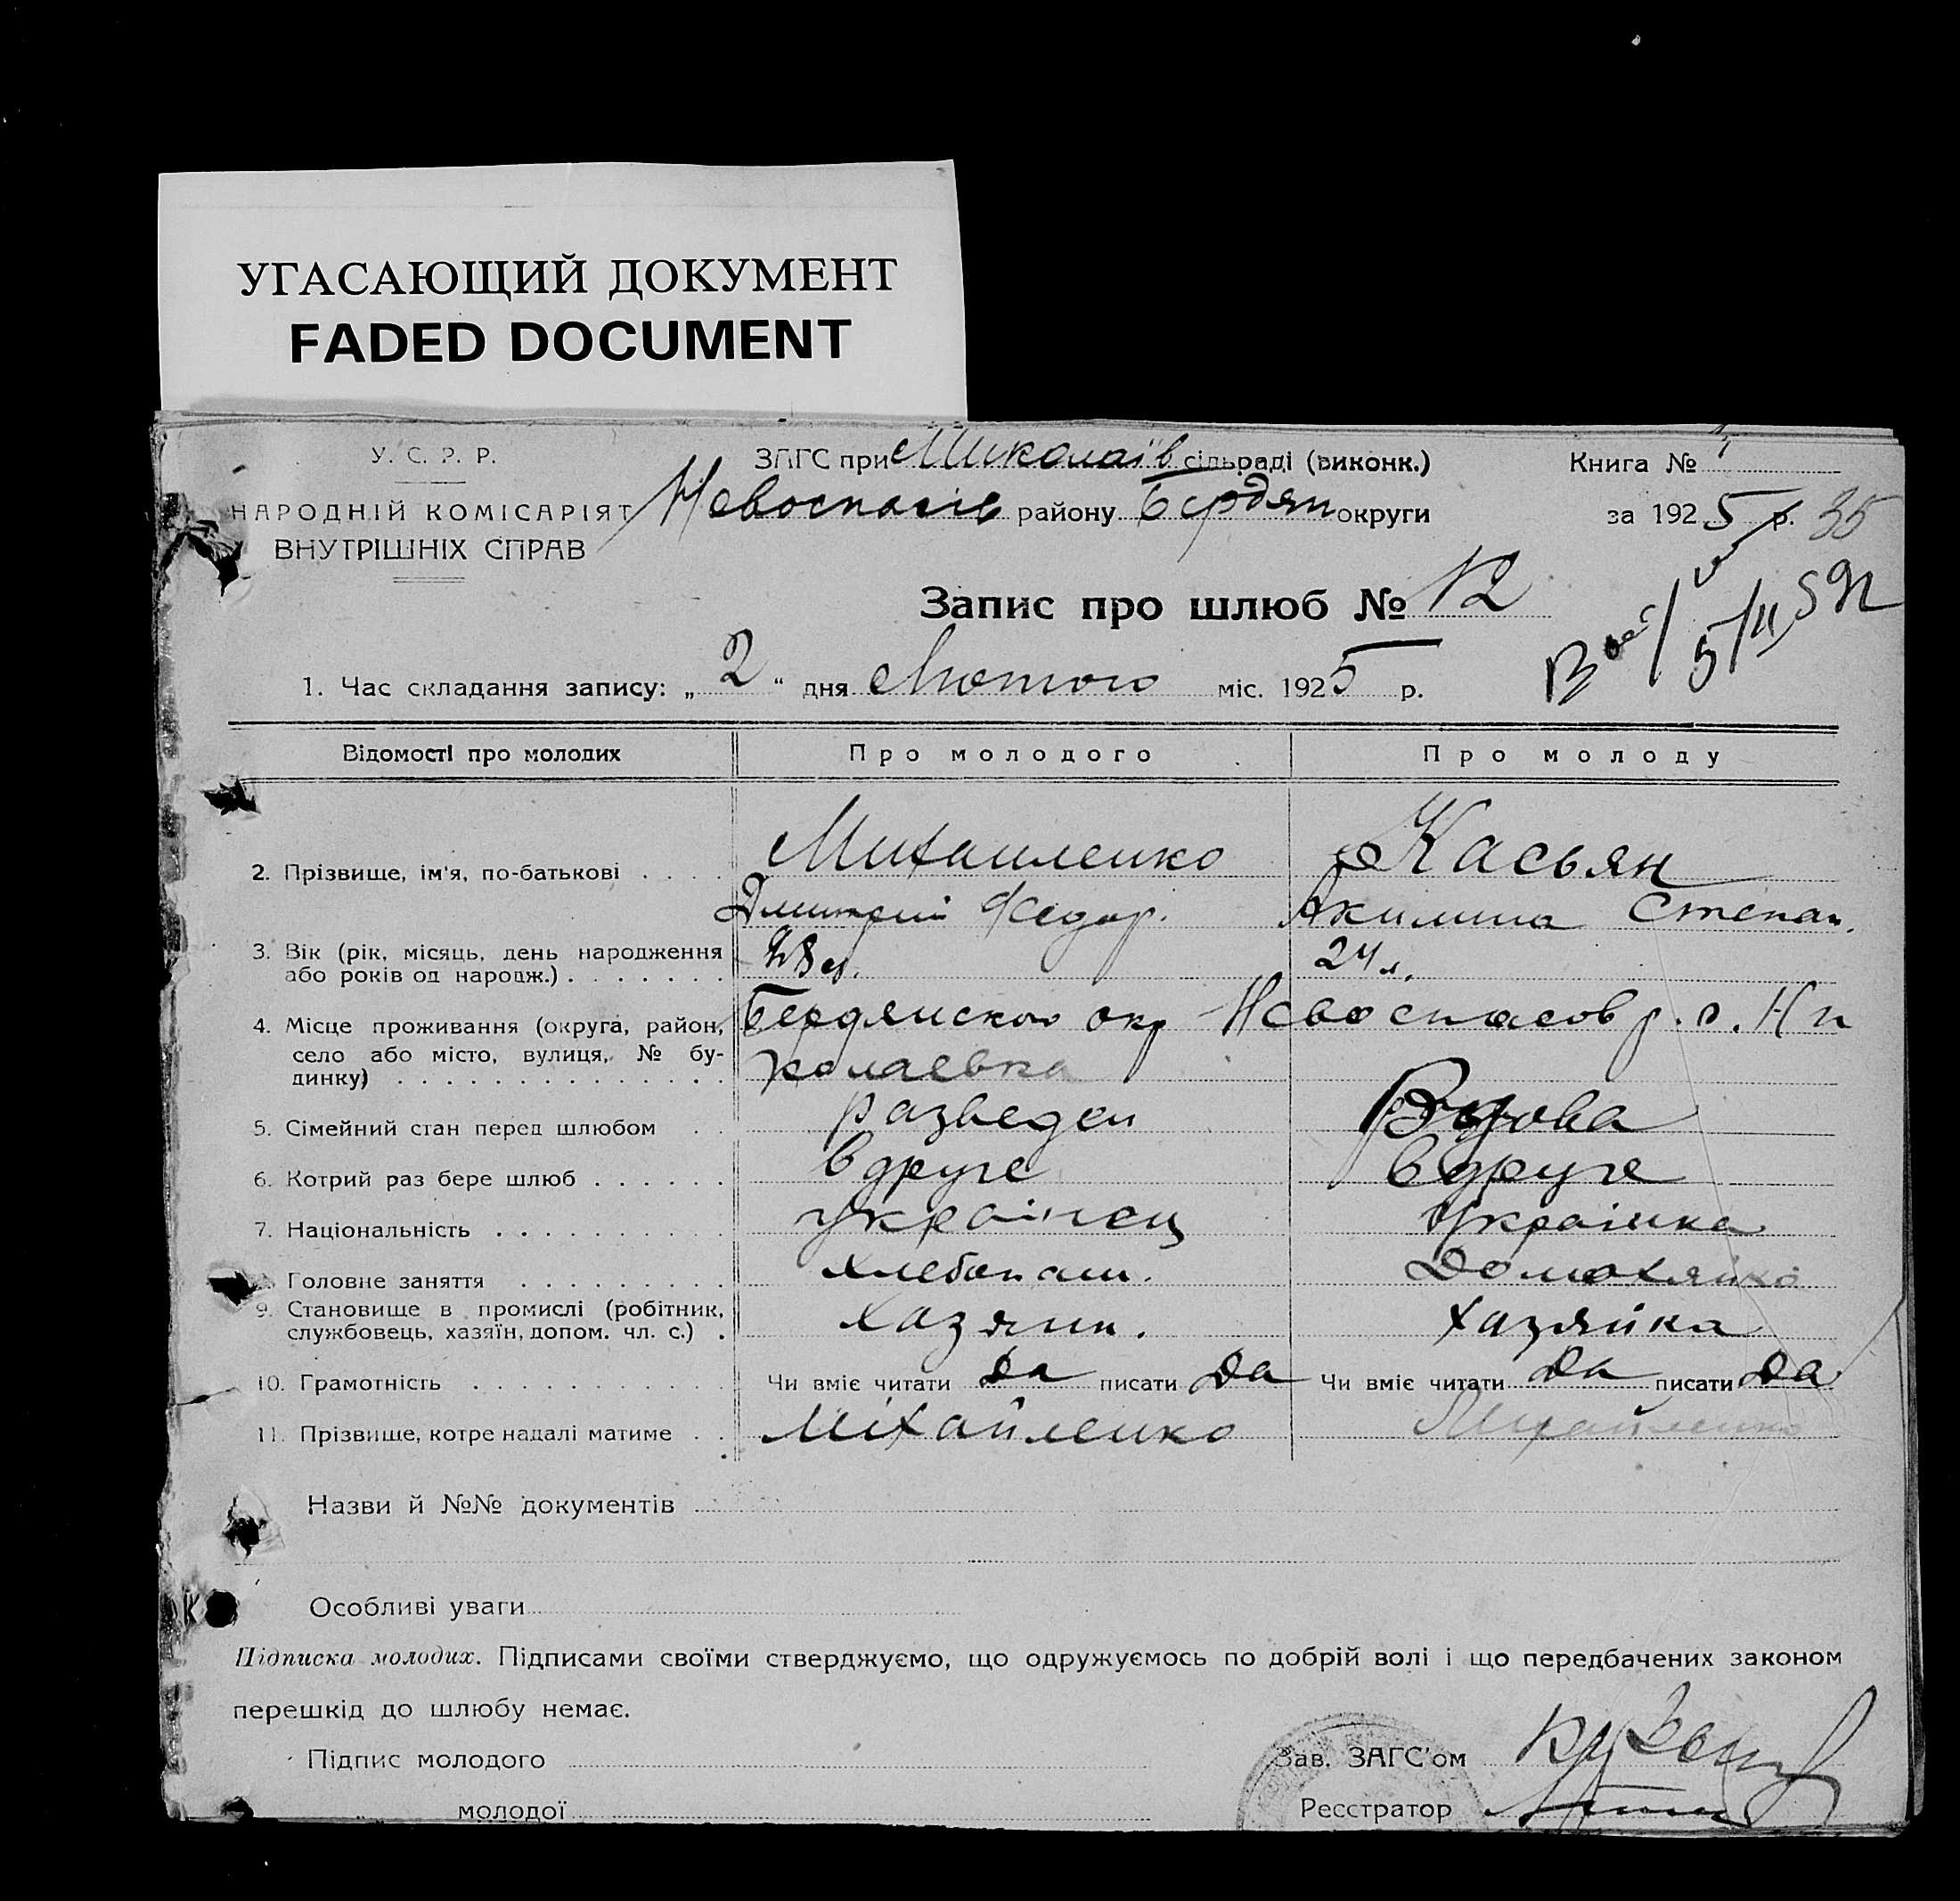 УГАСАЮЩИЙ ДОКУМЕНТ
FADED DOCUMENT
У. С. Р. Р.
НАРОДНІЙ КОМІСАРІЯТ
ВНУТРІШНІХ СПРАВ
ЗАГС при Миколаїв сільраді (виконк.)
Новоспасів району Бердян округи
Книга № 1
за 1925 р. 35
Запис про шлюб № 12
1. Час складання запису: „ 2 “ дня Лютого міс. 1925 р.
5/II
Відомості про молодих Про молодого Про молоду
2. Прізвище, ім'я, по-батькові . . . . Михаиленко Касьян
Дмитрий Федор. Акилина Степан.
3. Вік (рік, місяць, день народження 28 л. 24 л.
або років од народж.) . . . . . . .
4. Місце проживання (округа, район, Бердянского окр Новоспасов р. с. Ни
село або місто, вулиця, № бу- колаевка
динку) . . . . . . . . . . . . . .
5. Сімейний стан перед шлюбом . . разведен Вдова
6. Котрий раз бере шлюб . . . . . . вдруге вдруге
7. Національність . . . . . . . . . . українец Українка
Головне заняття . . . . . . . . . хлебопаш. Домохяйка
9. Становище в промислі (робітник, хазяин. хазяйка
службовець, хазяїн, допом. чл. с.) .
10. Грамотність . . . . . . . . . . . Чи вміє читати Да писати Да Чи вміє читати Да писати Да
11. Прізвище, котре надалі матиме . . Міхайленко Михайленко
Назви й №№ документів
Особливі уваги
Підписка молодих. Підписами своїми стверджуємо, що одружуємось по добрій волі і що передбачених законом
перешкід до шлюбу немає.
Підпис молодого
„ молодої
Зав. ЗАГС'ом
Реєстратор